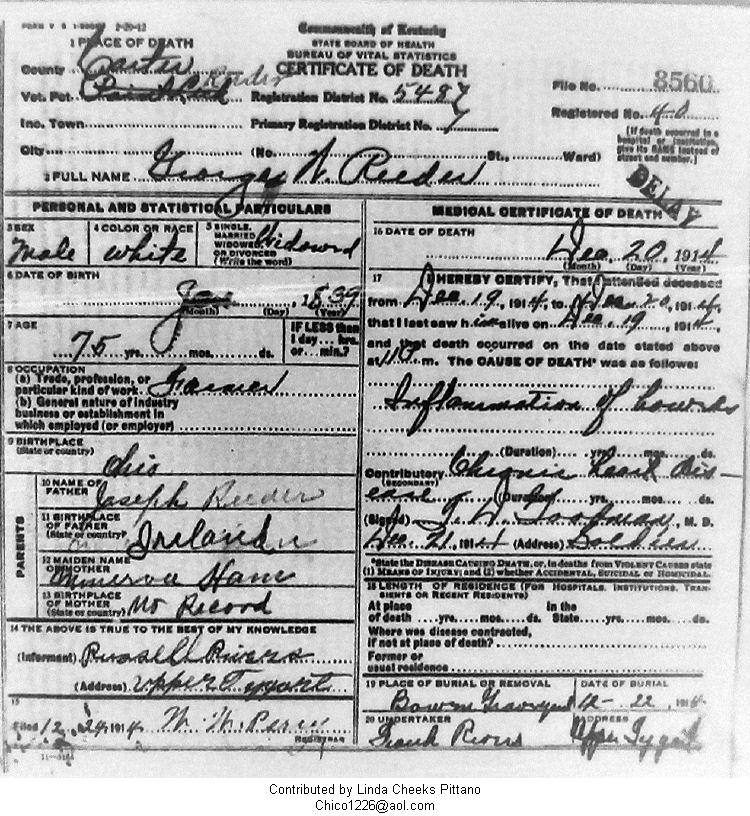 Commonwealth of Kentucky
STATE BOARD OF HEALTH
BUREAU OF VITAL STATISTICS
CERTIFICATE OF DEATH
1 PLACE OF DEATH
County Carter
Vot. Pct. Reeder Registration District No. 5487
File No. 8560
Inc. Town Primary Registration District No. 7
Registered No. 40
[If death occurred in a hospital or institution, give its NAME instead of street and number.]
City (No. St., Ward)
2 FULL NAME George W. Reeder
DELAY
PERSONAL AND STATISTICAL PARTICULARS
3 SEX Male
4 COLOR OR RACE White
5 SINGLE, MARRIED, WIDOWED OR DIVORCED (Write the word) Widowed
6 DATE OF BIRTH
Jan, 1839
(Month) (Day) (Year)
7 AGE
75 yrs. mos. ds.
IF LESS than 1 day... hrs. or... min.?
8 OCCUPATION
(a) Trade, profession, or particular kind of work. Farmer
(b) General nature of industry business or establishment in which employed (or employer)
9 BIRTHPLACE
(State or country)
Ohio
PARENTS
10 NAME OF FATHER Joseph Reeder
11 BIRTHPLACE OF FATHER (State or country) Ireland
12 MAIDEN NAME OF MOTHER Minerva Ham
13 BIRTHPLACE OF MOTHER (State or country) No Record
14 THE ABOVE IS TRUE TO THE BEST OF MY KNOWLEDGE
(Informant) Russell Rivers
(Address) Upper Tygart
15
Filed 12, 24, 1914 W. W. Perry
REGISTRAR
MEDICAL CERTIFICATE OF DEATH
16 DATE OF DEATH
Dec. 20, 1914
(Month) (Day) (Year)
17 I HEREBY CERTIFY, That I attended deceased
from Dec. 19, 1914, to Dec. 20, 1914,
that I last saw him alive on Dec. 19, 1914,
and that death occurred on the date stated above
at m. The CAUSE OF DEATH* was as follows:
Inflammation of bowels
(Duration) yrs. mos. ds.
Contributory Chronic heart disease
(SECONDARY)
(Duration) yrs. mos. ds.
(Signed) M. D.
Dec. 21, 1914 (Address) Soldier
*State the DISEASE CAUSING DEATH, or, in deaths from VIOLENT CAUSES state
(1) MEANS OF INJURY; and (2) whether ACCIDENTAL, SUICIDAL or HOMICIDAL.
18 LENGTH OF RESIDENCE (FOR HOSPITALS, INSTITUTIONS, TRANSIENTS OR RECENT RESIDENTS)
At place of death yrs. mos. ds. In the State yrs. mos. ds.
Where was disease contracted,
if not at place of death?
Former or
usual residence
19 PLACE OF BURIAL OR REMOVAL
DATE OF BURIAL
Bowen Graveyard 12-22, 1914
20 UNDERTAKER
ADDRESS
Frank Rivers Upper Tygart
Contributed by Linda Cheeks Pittano
Chico1226@aol.com